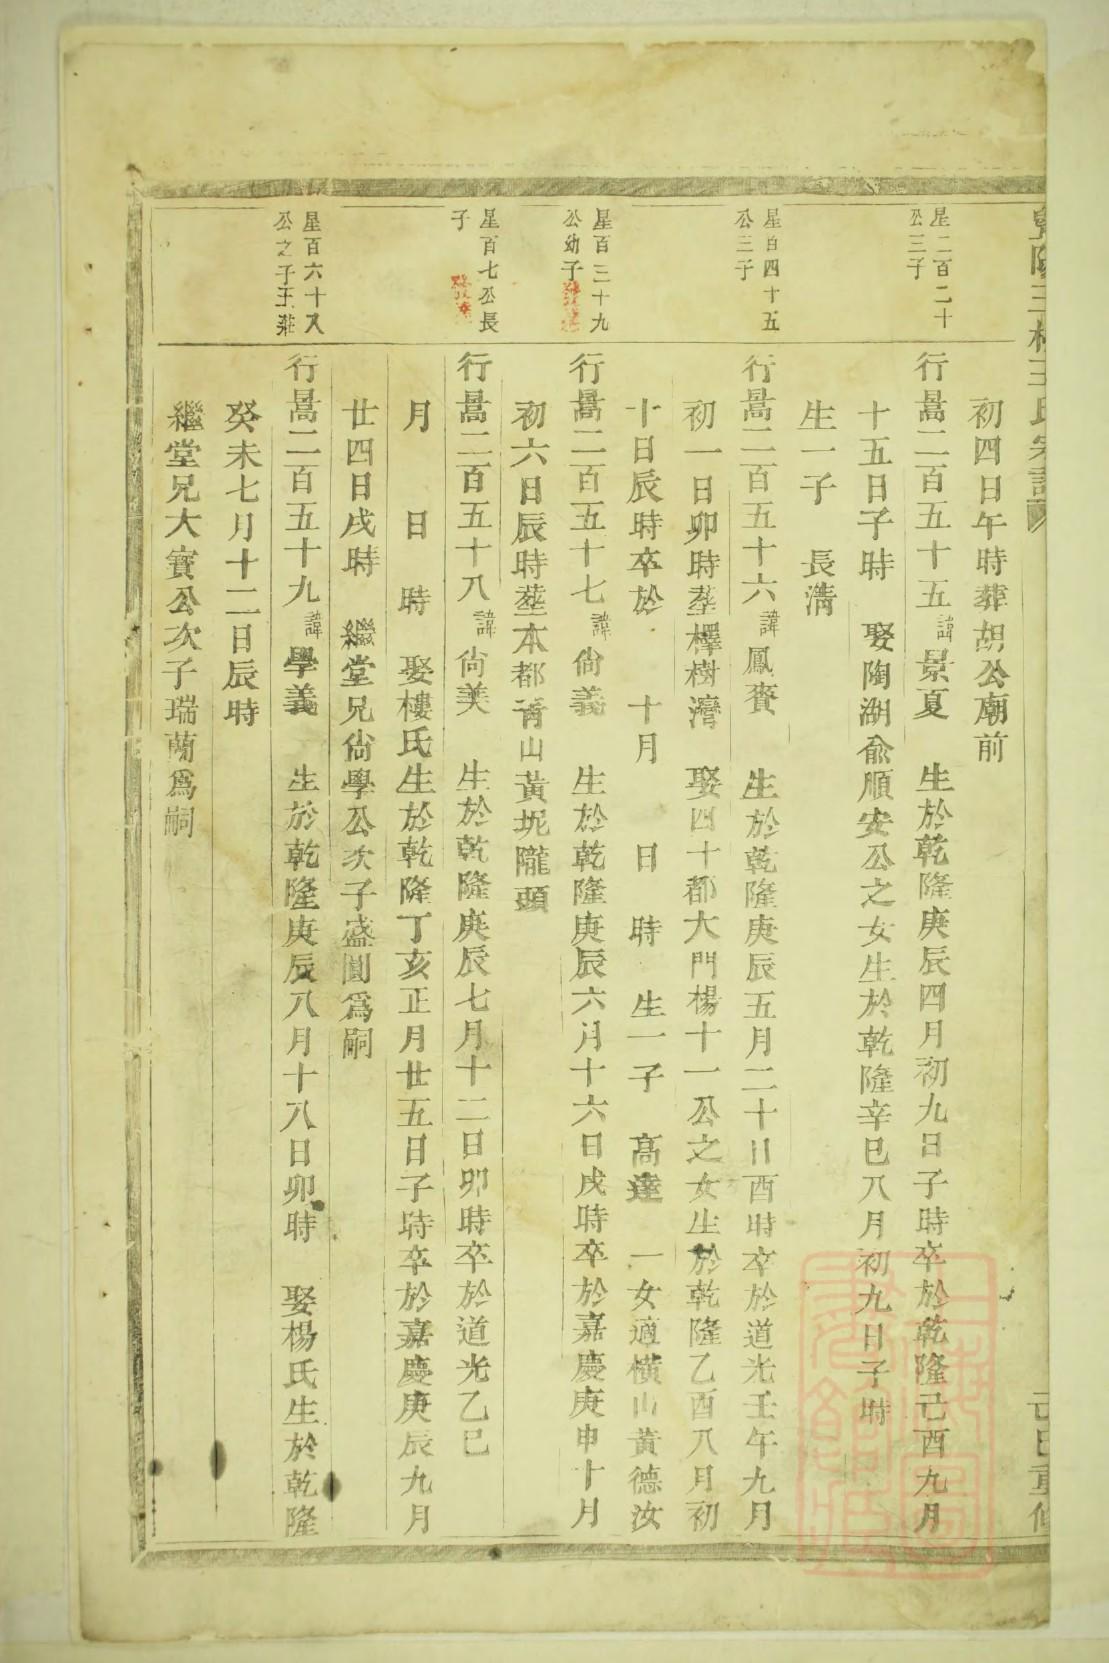 初四日午時葬胡公廟前
星二百二十
公三子
行暠二百五十五諱景夏　生於乾隆庚辰四月初九日子時卒於乾隆己酉九月
十五日子時　娶陶湖俞順安公之女生於乾隆辛巳八月初九日子時
生一子　長清
星百四十五
公三子
行暠二百五十六諱鳳賚　生於乾隆庚辰五月二十日酉時卒於道光壬午九月
初一日卯時塟檡樹灣　娶四十都大門楊十一公之女生於乾隆乙酉八月初
十日辰時卒於　十月　日　時　生一子　高達　一女適橫山黃德汝
星百三十九
公幼子
行暠二百五十七諱尙義　生於乾隆庚辰六月十六日戌時卒於嘉慶庚申十月
初六日辰時塟本都靑山黃坭隴頭
星百七公長
子
行暠二百五十八諱尙美　生於乾隆庚辰七月十二日卯時卒於道光乙巳
月　日　時　娶樓氏生於乾隆丁亥正月廿五日子時卒於嘉慶庚辰九月
廿四日戌時　繼堂兄尙學公次子盛圓爲嗣
星百六十八
公之子王莊
行暠二百五十九諱學義　生於乾隆庚辰八月十八日卯時　娶楊氏生於乾隆
癸未七月十二日辰時
繼堂兄大寶公次子瑞蘭爲嗣